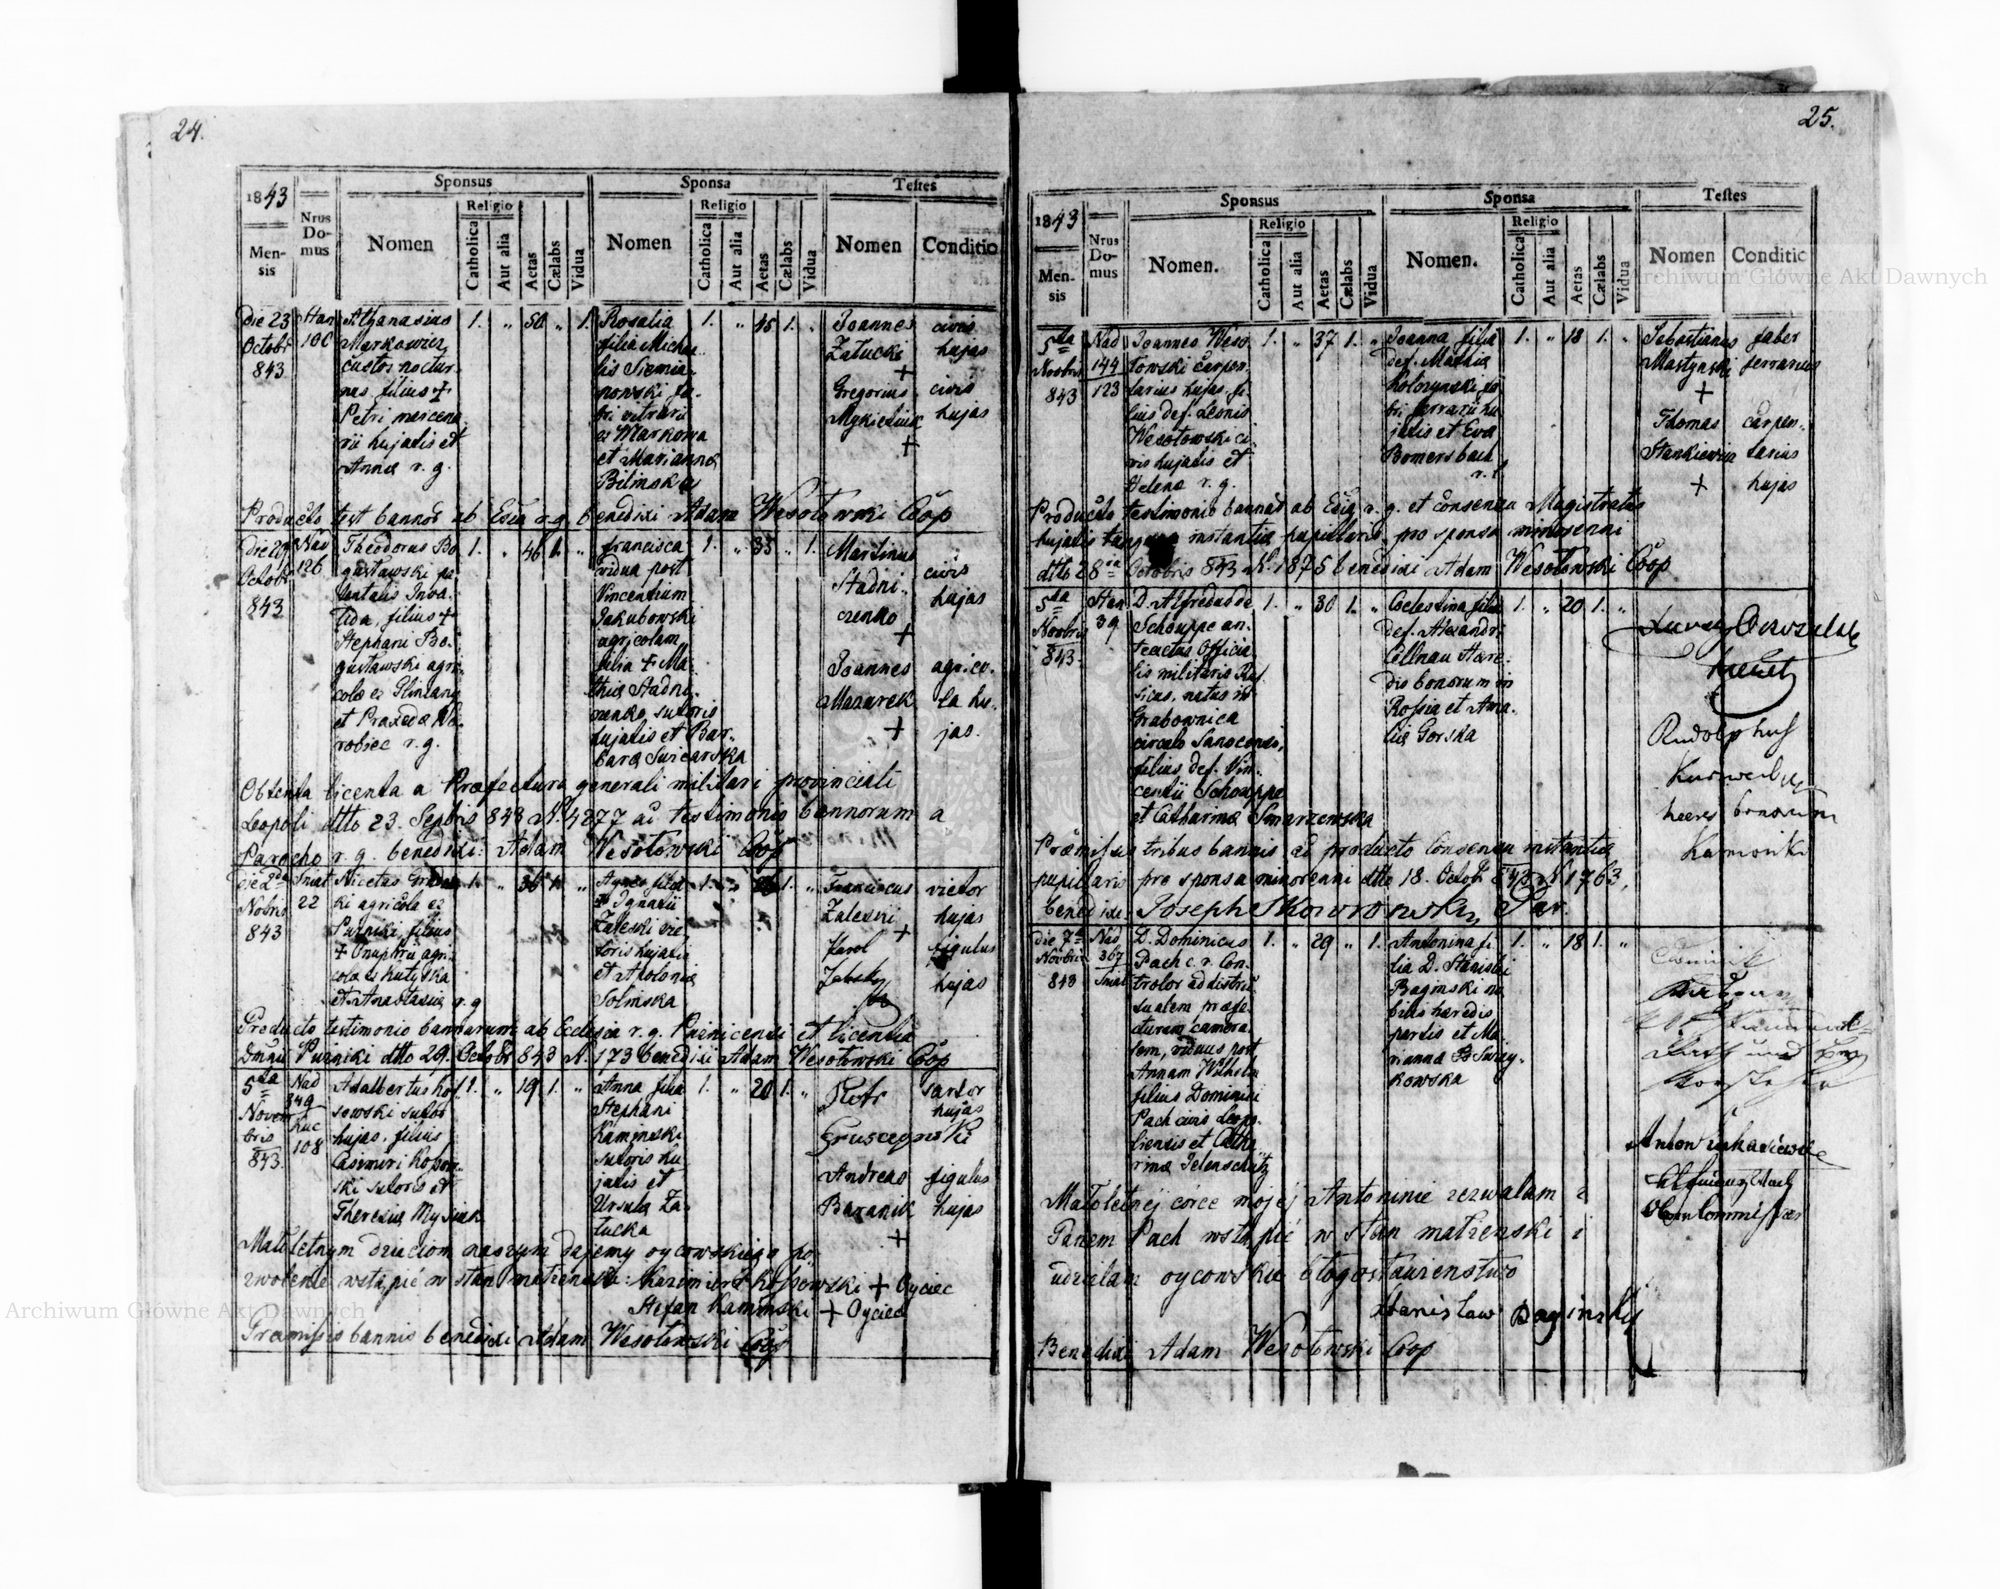 24.
1843
Mensis
Nrus Domus
Sponsus
Nomen
Religio
Catholica
Aut alia
Aetas
Cælabs
Vidua
Sponsa
Nomen
Religio
Catholica
Aut alia
Aetas
Cælabs
Vidua
Testes
Nomen
Conditio
Die 23
Octobr
843
100
Athanasius
Markowicz
custos noctur
nus filius +
Petri mercena
rii hujatis et
Annæ r. g.
1. " 50 " 1.
Rosalia
filia Micha
lis Siemia
nowski fa
bri vitrarii
ex Markowa
et Marianna
Bilinska
1. " 45 1. "
Joannes
Załucki
+
Gregorius
+
civis
hujas
civis
hujas
Producto test bannor ab Ecia r. g. benedixi Adam Wesołowski Coop
Die 29
Octobr
843
Nad
126
Theodorus Bo
gusławski pa
tentalis Inva
lida, filius +
Stephani Bo
gusławski agri
colæ ex Gliniany
et Praxeda
r. g.
1. " 46 1. "
Francisca
vidua post
Vincentium
Jakubowski
agricolam
filia + Ma
thiæ Stadni
czenko sutoris
hujatis et Bar
bara
1. " 35 " 1.
Martinus
Stadni
czenko
+
Joannes
Mazurek
+
civis
hujas
agrico
la hu
jas.
Obtenta licentia a Præfectura generali militari provinciali
Leopoli dtto 23. Septbris 843 N. 4277 ac testimonio bannorum a
Parocho r. g. benedixi: Adam Wesołowski Coop
Die 2da
Nobris
843
Sniat
22
Nicetas
ki agricola ex
filius
+ Onuphrii agri
cola ex
et Anastasiæ r. g
1. " 36 1. "
Agnes filia
+ Ignatii
Zaleski vie
toris hujatis
et Apolonia
Solinska
1. " 1. "
Franciscus
Zaleski
+
Karol
vietor
hujas
figulus
hujas
Producto testimonio bannorum ab Ecclesia r. g. et licentia
Dominii dtto 29. Octobr 843 N. 173 benedixi Adam Wesołowski Coop
5ta
Novem
bris
843.
Nad
349
108
Adalbertus Kos
sowski sutor
hujas, filius
Casimiri Kossow
ski sutoris et
Theresiæ
1. " 19 1. "
Anna filia
Stephani
Kaminski
sutoris hu
jatis et
Ursula Za
łucka
1. " 20 1. "
Piotr
Gruszczynski
Andreas
Baranik
+
sartor
hujas
figulus
hujas
Małoletnym dzieciom naszym dajemy oycowskiego po
zwolenie wstąpić w stan małżeński: Kazimierz Kossowski + Oyciec
Stefan Kaminski + Oyciec
Præmissis bannis benedixi Adam Wesołowski Coop
25.
1843
Mensis
Nrus Domus
Sponsus
Nomen.
Religio
Catholica
Aut alia
Aetas
Cælabs
Vidua
Sponsa
Nomen.
Religio
Catholica
Aut alia
Aetas
Cælabs
Vidua
Testes
Nomen
Conditio
5ta
Novbris
843
Nad
144
123
Joannes Weso
łowski carpen
tarius hujas, fi
lius def. Leonis
Wesołowski ci
vis hujatis et
Helenæ r. g.
1. " 37 1. "
Joanna filia
def. Mathiæ
bri ferrarii hu
jatis et Eva
Bomersbach
r. l.
1. " 18 1. "
Sebastianus
Mastynski
+
Thomas
Stankiewicz
+
faber
ferrarius
carpen
tarius
hujas
Producto testimonio bannor ab Ecia r. g. et consensu Magistratus
hujatis tanquam instantiæ pupillaris pro sponsa minorenni
dtto 28va Octobris 843 N. 1875 benedixi Adam Wesołowski Coop
5ta
Novbris
843.
Stan
39
D. Alfredus de
Schouppe
Officia
lis militaris
natus in
Grabownica
circulo Sanocensi,
filius def. Vin
centii Schouppe
et Catharinæ Smarzewska
1. " 30 1. "
Celestina filia
def. Alexandri
Cellnau Hære
dis bonorum in
Rossia et Ama
lia Gorska
1. " 20 1. "
Rudolphus
heres bonorum
Præmissis tribus bannis ac producto Consensu instantiæ
pupillaris pro sponsa minorenni dtto 18. Octobr 843 N. 1763,
benedixi Joseph Skowronski, Par.
Die 7a
Novbris
843
Nad
367
Sniat
D. Dominicus
Pach c. r. Con
trolor ad distric
tualem præfe
cturam camera
lem, viduus post
Annam Wilhelm
filius Dominici
Pach civis Leopo
liensis et Catha
rina
1. " 29 " 1.
Antonina fi
lia D. Stanislai
Baginski no
bilis hæredis
partis et Ma
rianna
kowska
1. " 18 1. "
Małoletnej córce mojej Antoninie zezwalam z
Panem Pach wstąpić w stan małżeński i
udzielam oycowskie błogosławieństwo
Stanisław Baginski
Benedixi Adam Wesołowski Coop
Archiwum Główne Akt Dawnych
Archiwum Główne Akt Dawnych